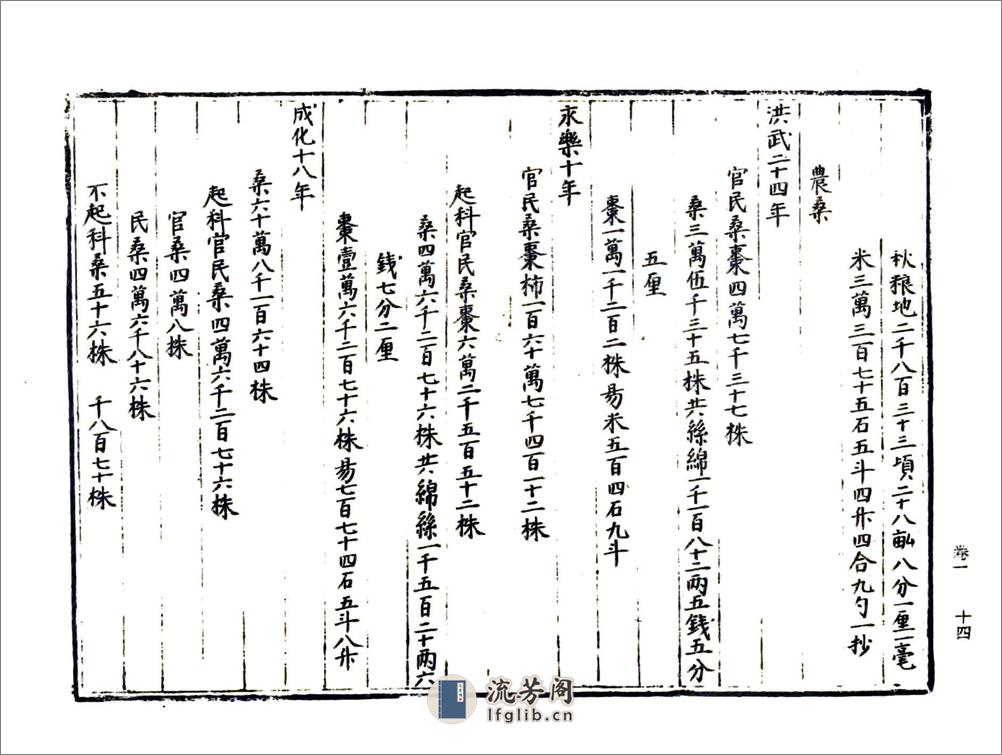 秋粮地二千八百三十三頃二十八畝八分一厘一毫
米三萬三百七十五石五斗四升四合九勺一抄
農桑
洪武二十四年
官民桑棗四萬七千三十七株
桑三萬伍千三十五株共絲綿一千一百八十二兩五錢五分
五厘
棗一萬一千二百二株易米五百四石九斗
永樂十年
官民桑棗柿一百六十萬七千四百一十二株
起科官民桑棗六萬二千五百五十二株
桑四萬六千二百七十六株共綿絲一千五百二十兩六
錢七分二厘
棗壹萬六千二百七十六株易七百七十四石五斗八升
成化十八年
桑六十萬八千一百六十四株
起科官民桑四萬六千二百七十六株
官桑四萬八株
民桑四萬六千八十六株
不起科桑五十六株 千八百七十株
卷一 十四
流芳阁
lfglib.cn